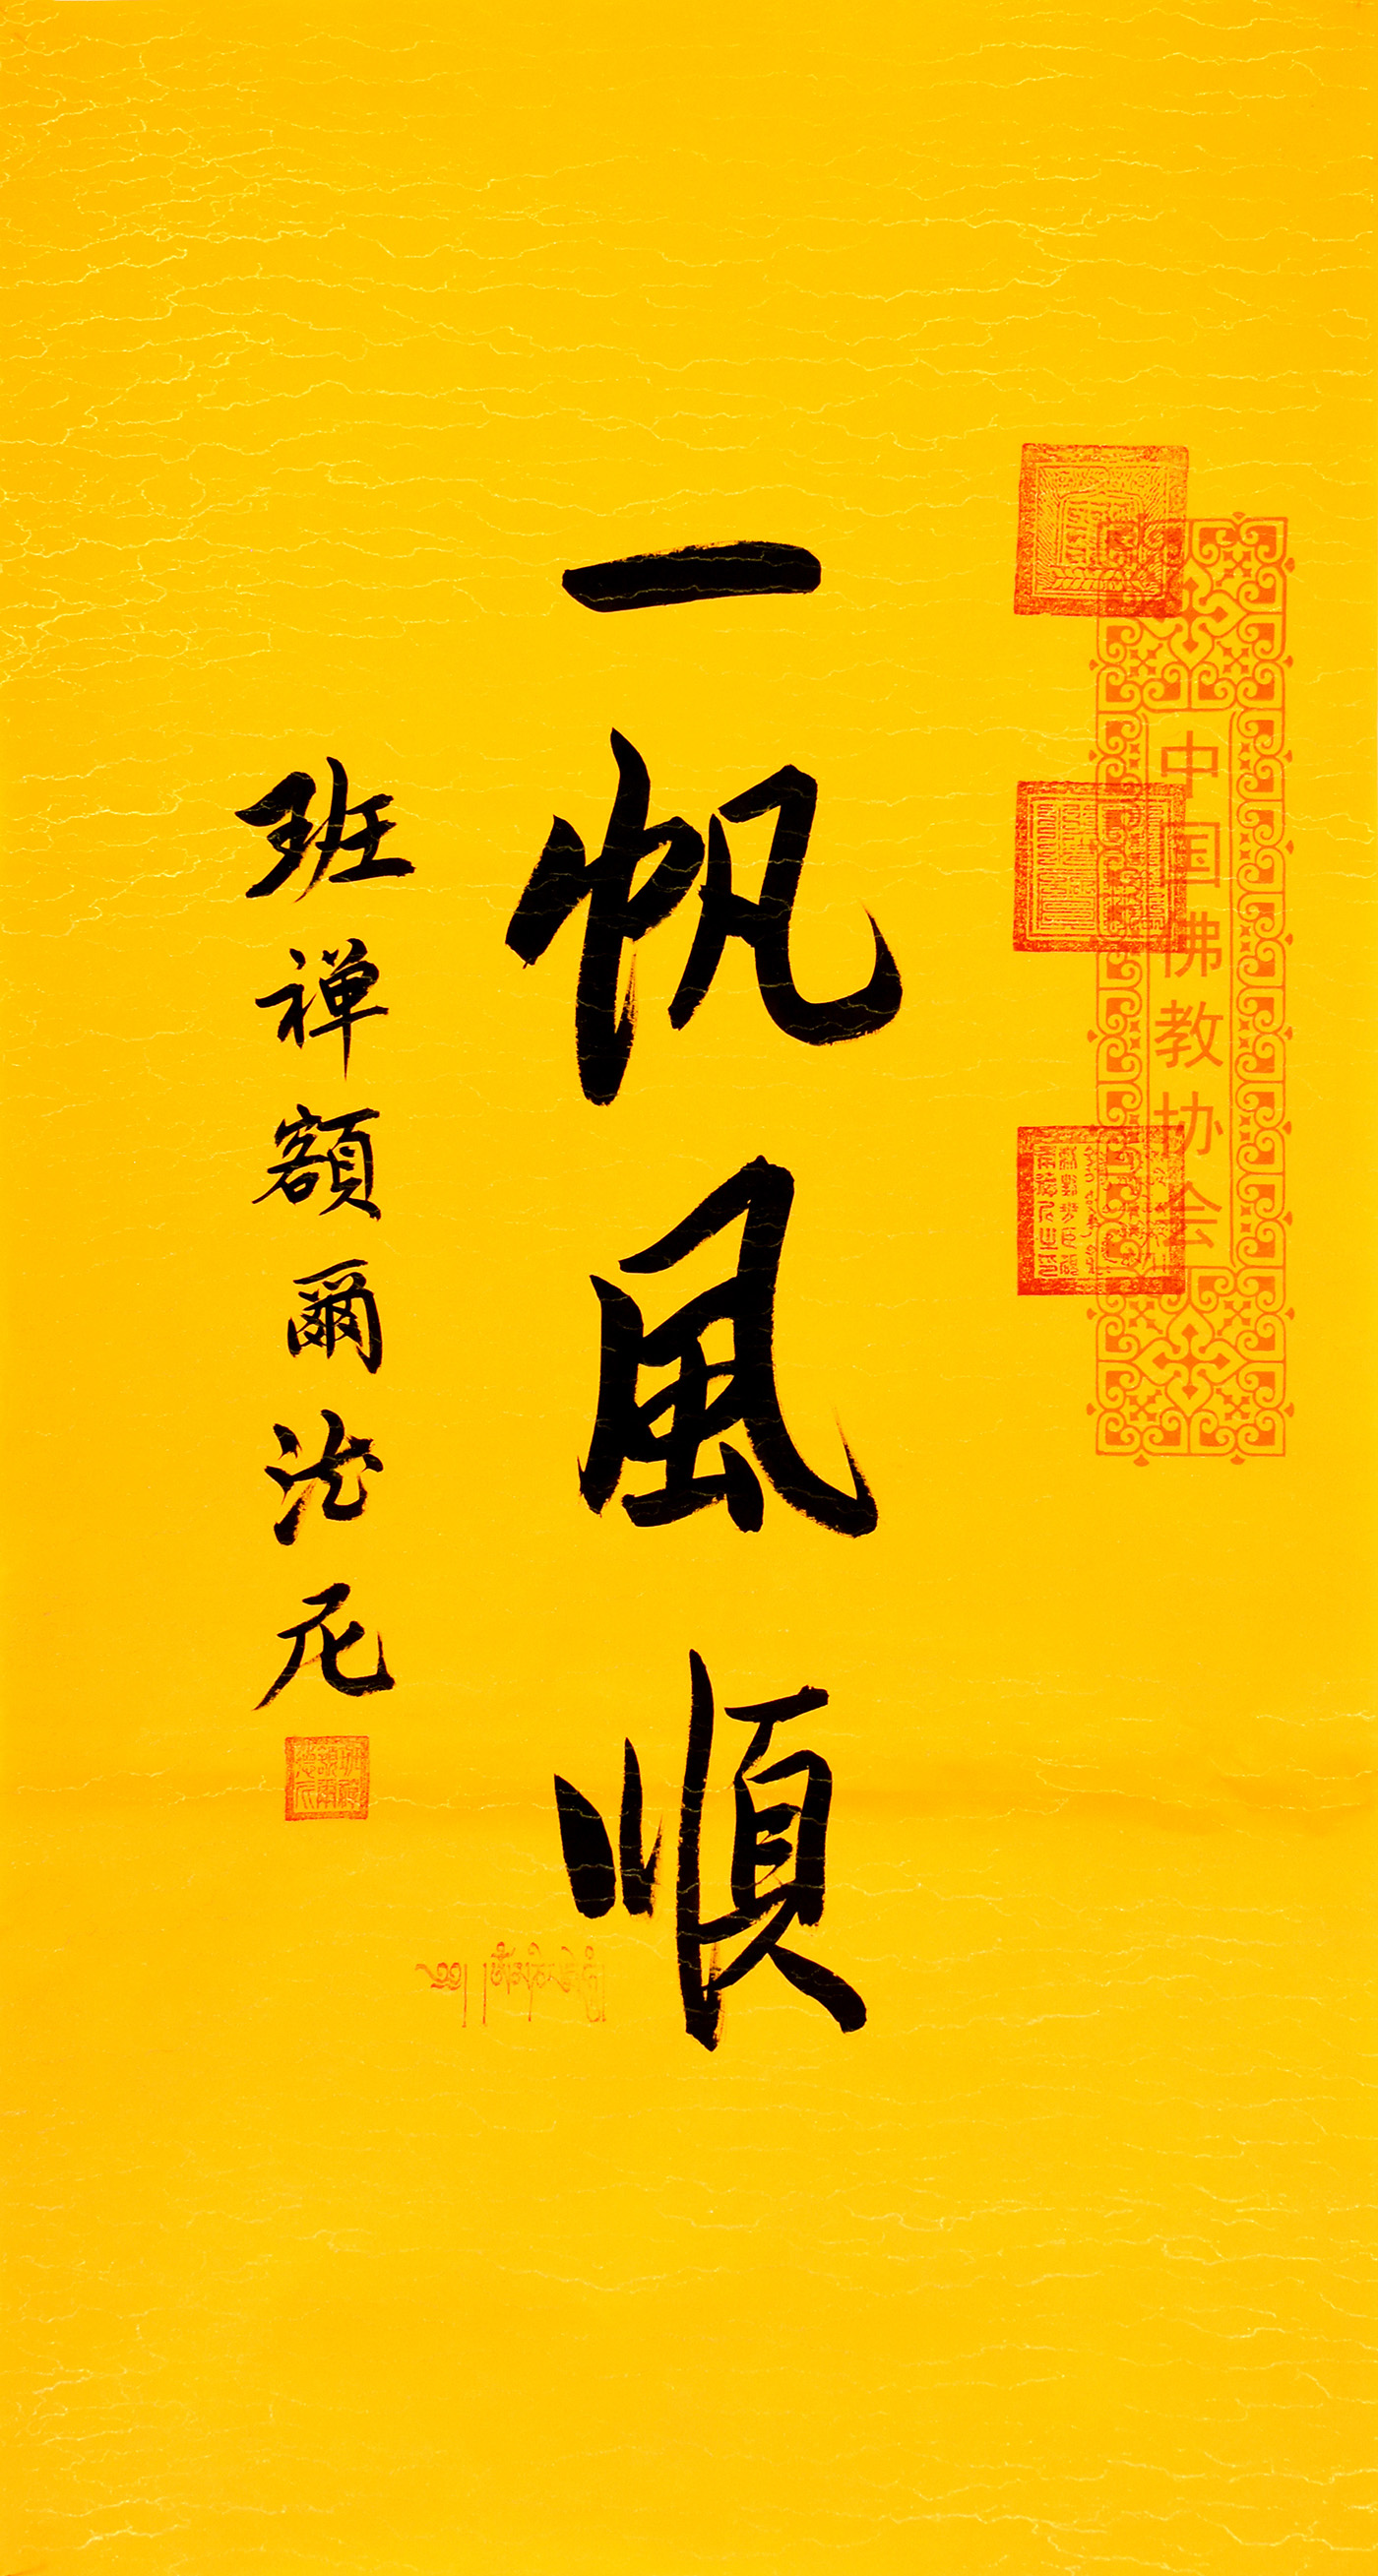 中国佛教协会
一帆風順
班禅額爾德尼
༄༅། །ཨོཾ་མ་ཎི་པདྨེ་ཧཱུྃ།